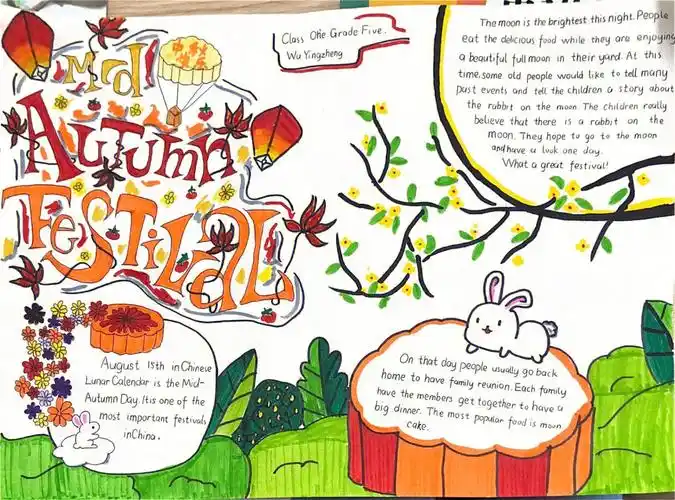 Mid
中秋
快乐
Autumn
Festival
Class One Grade Five.
Wu Yingzheng
The moon is the brightest this night. People
eat the delicious food while they are enjoying
a beautiful full moon in their yard. At this
time, some old people would like to tell many
past events and tell the children a story about
the rabbit on the moon. The children really
believe that there is a rabbit on the
moon. They hope to go to the moon
and have a look one day.
What a great festival!
August 15th in Chinese
Lunar Calendar is the Mid-
Autumn Day. It is one of the
most important festivals
in China.
On that day people usually go back
home to have family reunion. Each family
have the members get together to have a
big dinner. The most popular food is moon
cake.